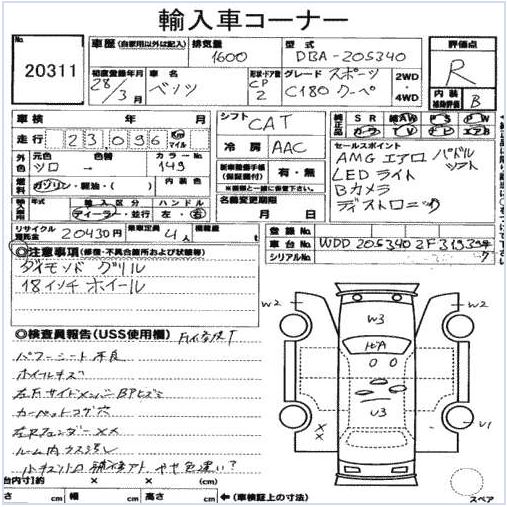 輸入車コーナー
No. 20311
車歴 (自家用以外は記入) 排気量 1600 型式 DBA-205340
評価点 R
初度登録年月 28/3月 車名 ベンツ 形状・ドア数 CP 2 グレード スポーツ C180 クーペ 2WD・4WD
内装補助評価 B
車検 年 月 シフト CAT
純正品 SR カワ 純AW TV PS ナビ PW エアB
走行 23,096 Km マイル
冷房 AAC
セールスポイント
AMG エアロ パドルシフト
LEDライト
Bカメラ
ディストロニック
外色 元色 シロ 色替 → カラーNo. 149
新車整備手帳(保証書付) 有・無
※書類と一緒に保管下さい。
燃料 ガソリン・軽油・( ) 内装色
輸入車用 年式 輸入区分 ディーラー・並行 ハンドル 左・右
名義変更期限 月 日
リサイクル預託金 20430円 乗車定員 4人 積載量 t
登録No.
車台No. WDD 205340 2F 319394
シリアルNo. 7
◎注意事項(修復・不具合箇所および状態等)
ダイモンド グリル
18インチ ホイール
◎検査員報告(USS使用欄)
パワーシート不良
ホイールキズ
カーペットコゲ穴
左Rフェンダー XX
W2 W3 W2
U3
U1
XX
スペア
台内寸)約 × × (cm)
さ cm 幅 cm 高さ cm ←(車検証上の寸法)